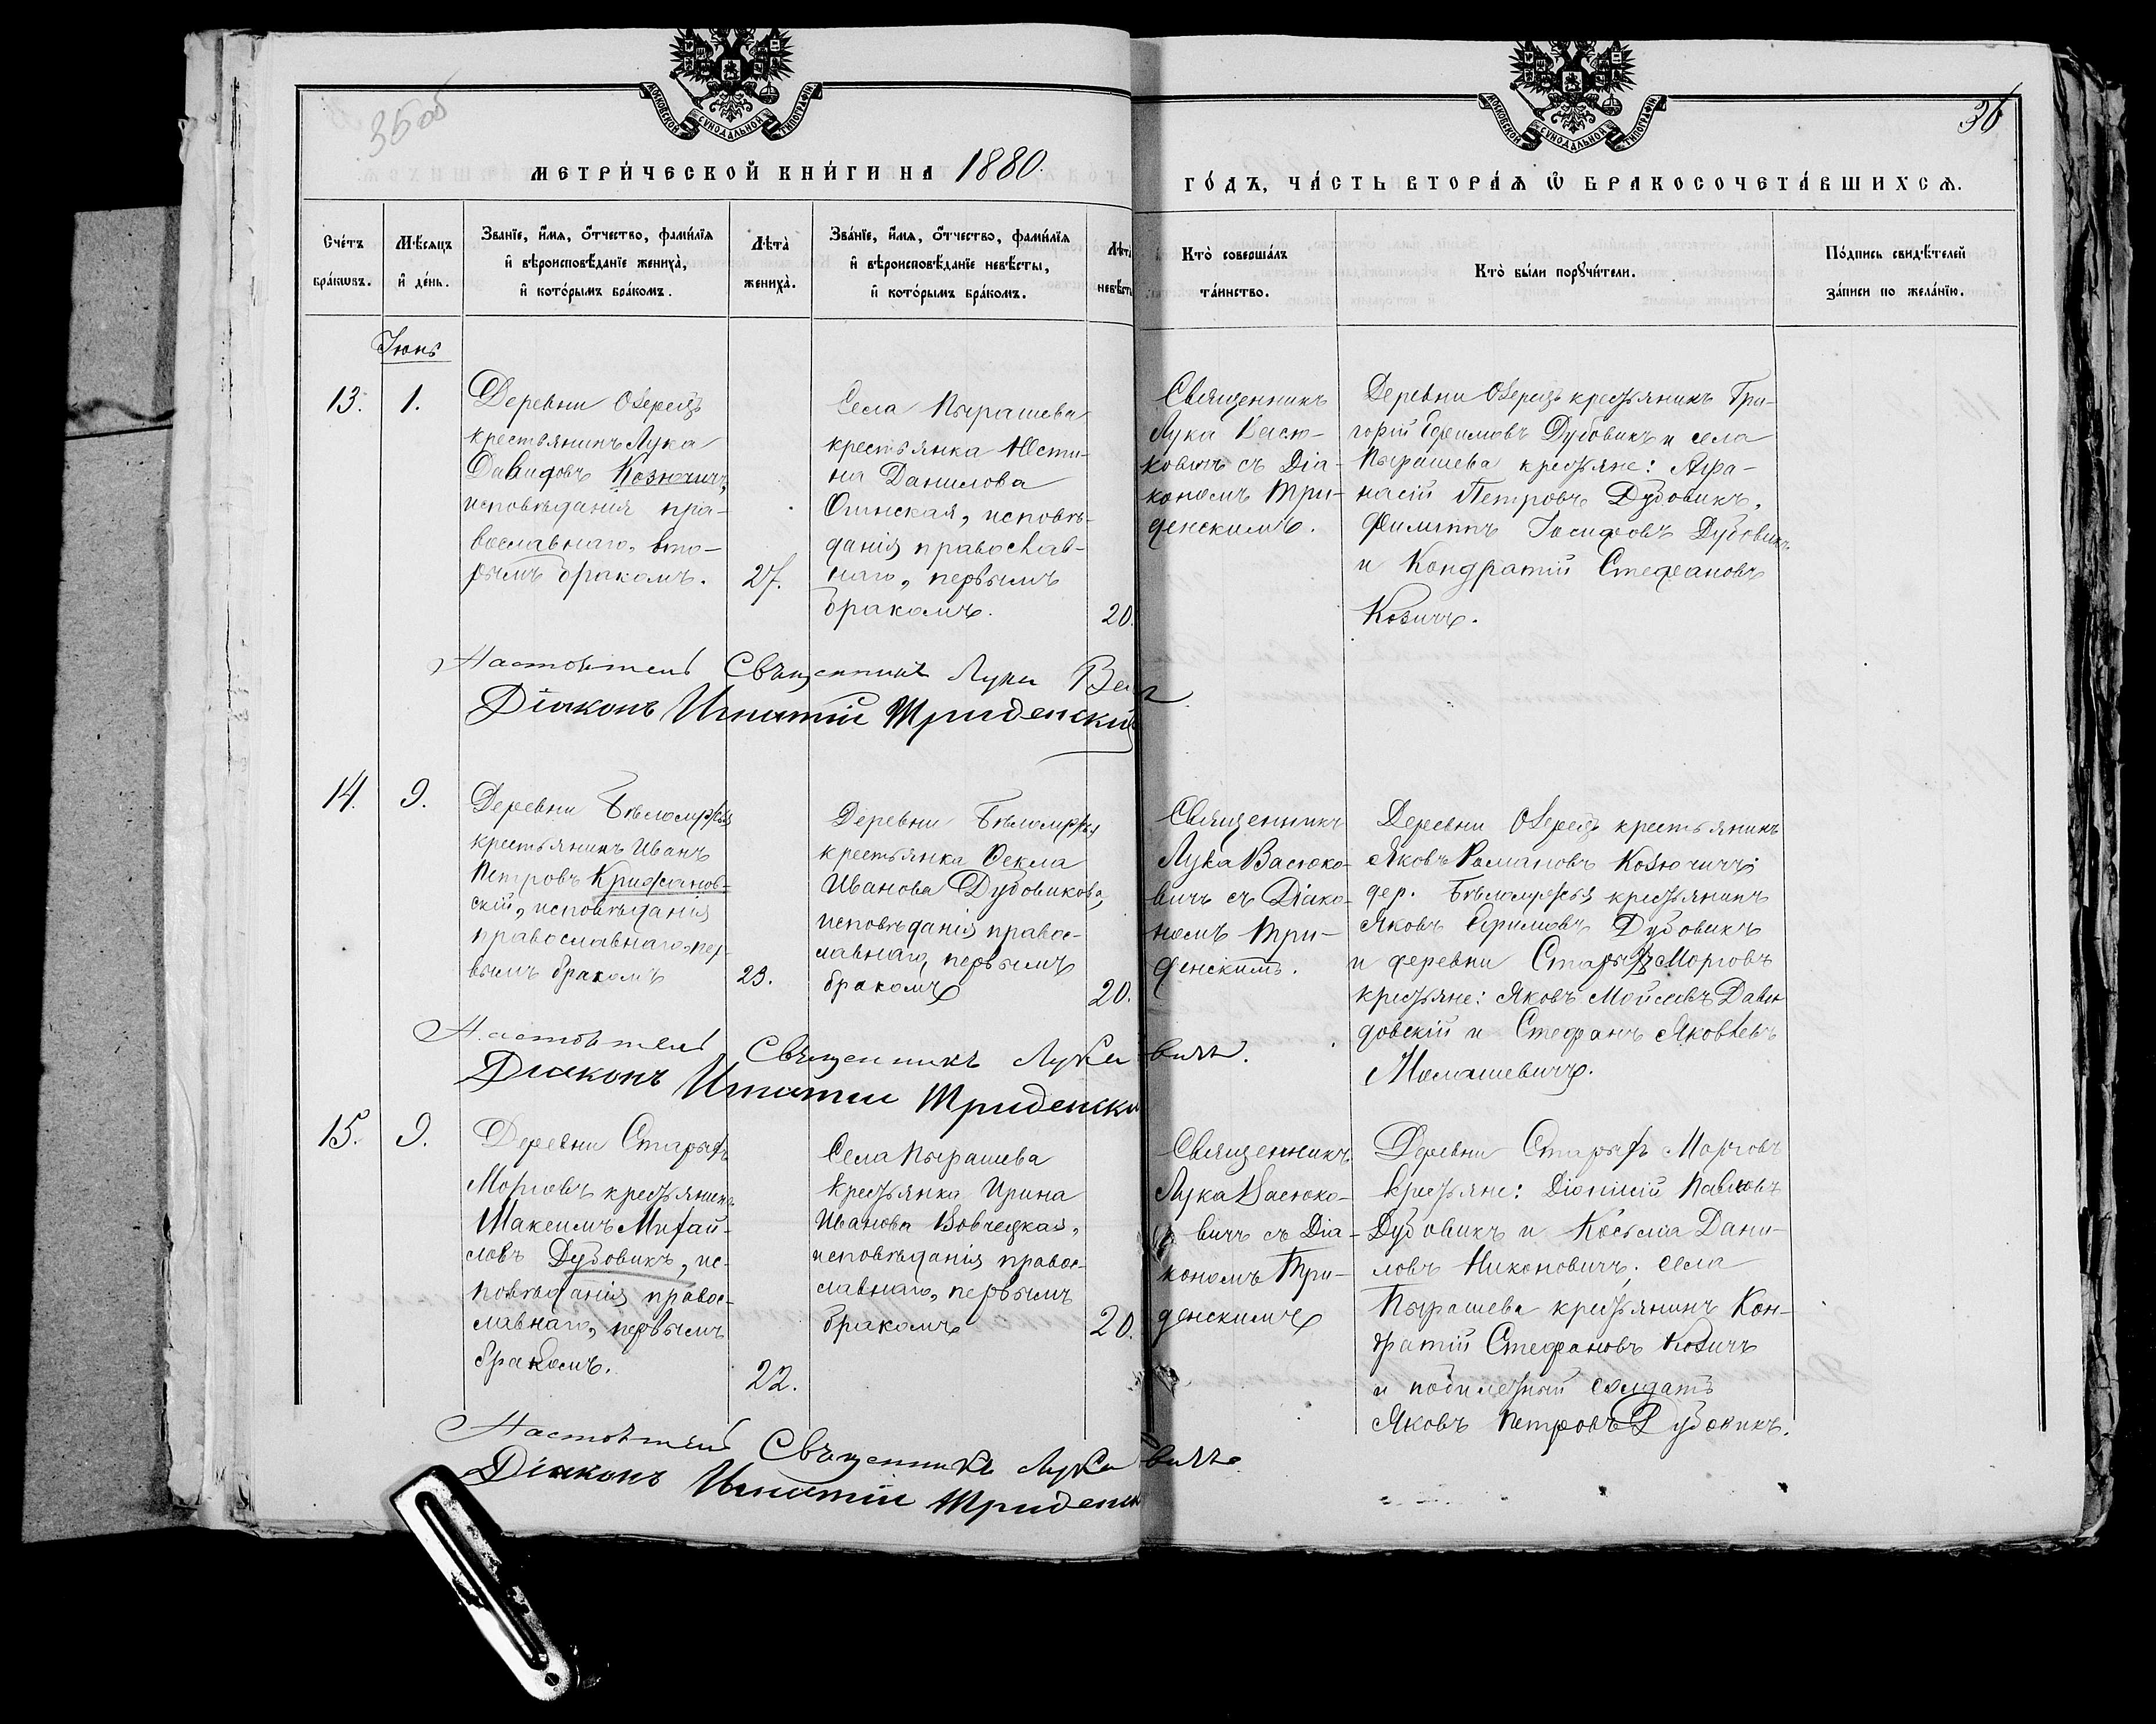 35 об
36
МОСКОВСКОЙ СУНОДАЛЬНОЙ ТИПОГРАФІИ
МОСКОВСКОЙ СУНОДАЛЬНОЙ ТИПОГРАФІИ
МЕТРИ́ЧЕСКОЙ КНИ́ГИ НА 1880.
ГО́ДЪ, ЧА́СТЬ ВТОРА́Ѧ Ѿ БРАКОСОЧЕТА́ВШИХСѦ.
Сче́тъ
бра́кѡвъ.
Мѣ́сяцъ
и҆ де́нь.
Зва́нїе, и҆́мѧ, ѻ҆́тчество, фами́лїѧ
и҆ вѣроисповѣ́данїе жениха̀,
и҆ кото́рымъ бра́комъ.
Лѣта̀
жениха̀.
Зва́нїе, и҆́мѧ, ѻ҆́тчество, фами́лїѧ
и҆ вѣроисповѣ́данїе невѣ́сты,
и҆ кото́рымъ бра́комъ.
Лѣта̀
невѣ́сты
Кто̀ соверша́лъ
та́инство.
Кто̀ бы́ли порꙋчи́тели.
По́дпись свидѣ́телей
за́писи по жела́нїю.
Іюнь
13.
1.
Деревни Озерецъ
крестьянинъ Лука
Давидовъ Козючичъ,
исповѣданія пра-
вославнаго, вто-
рымъ бракомъ.
27.
Села Пырашева
крестьянка Юсти-
на Данилова
Огинская, исповѣ-
данія православ-
наго, первымъ
бракомъ.
20.
Священникъ
Лука Васю-
ковичъ съ Діа-
кономъ Три-
денскимъ.
Деревни Озерецъ крестьянинъ Гри-
горій Ефимовъ Дубовикъ и села
Пырашева крестьяне: Афа-
насій Петровъ Дубовикъ,
Филиппъ Іосифовъ Дубовикъ
и Кондратій Стефановъ
Козичъ.
Настоятель Священникъ Лука Вас
Діаконъ Игнатій Триденскій
14.
9.
Деревни Бѣломржья
крестьянинъ Иванъ
Петровъ Крижанов-
скій, исповѣданія
православнаго, пер-
вымъ бракомъ
23.
Деревни Бѣломржья
крестьянка Ѳекла
Иванова Дубовикова,
исповѣданія правос-
лавнаго, первымъ
бракомъ
20.
Священникъ
Лука Васюко-
вичъ съ Діако-
номъ Три-
денскимъ.
Деревни Озерецъ крестьянинъ
Яковъ Романовъ Козючичъ;
дер. Бѣломржья крестьянинъ
Яковъ Ефимовъ Дубовикъ
и деревни Старыхъ Морговъ
крестьяне: Яковъ Моисеевъ Давы-
довскій и Стефанъ Яковлевъ
Малашевичъ.
Настоятель Священникъ Лука вичъ.
Діаконъ Игнатій Триденски
15.
9.
Деревни Старыхъ
Морговъ крестьянинъ
Максимъ Михай-
ловъ Дубовикъ, ис-
повѣданія правос-
лавнаго, первымъ
бракомъ.
22.
Села Пырашева
крестьянка Ирина
Иванова Вовчецкая,
исповѣданія правос-
лавнаго, первымъ
бракомъ
20.
Священникъ
Лука Васюко-
вичъ съ Діа-
кономъ Три-
денскимъ
Деревни Старыхъ Морговъ
крестьяне: Діонисій Павловъ
Дубовикъ и Косьма Дани-
ловъ Никоновичъ; села
Пырашева крестьянинъ Кон-
дратій Стефановъ Козичъ
и побилетный солдатъ
Яковъ Петровъ Дубовикъ.
Настоятель Священникъ Лука вичъ
Діаконъ Игнатій Триденск